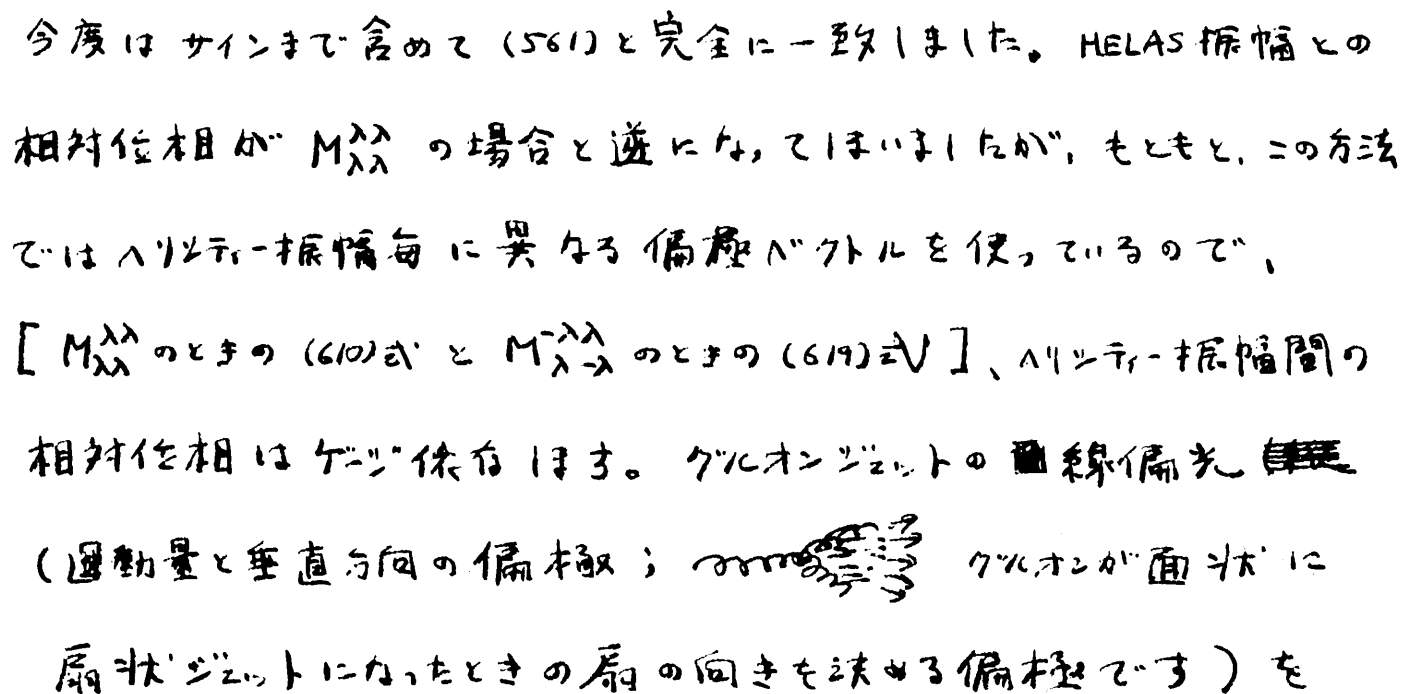 今度は サインまで 含めて (561)と完全に一致しました。HELAS振幅との
相対位相が M^{λλ}_{λλ} の場合と逆になってしまいましたが、もともと、この方法
ではヘリシティー振幅毎に異なる偏極ベクトルを使っているので、
[ M^{λλ}_{λλ} のときの (610)式 と M^{-λλ}_{λ-λ} のときの (619)式 ]、ヘリシティー振幅間の
相対位相は ゲージ依存します。グルオンジェットの 線偏光
(運動量と垂直方向の偏極; グルオンが面状に
扇状ジェットになったときの扇の向きを決める偏極です) を